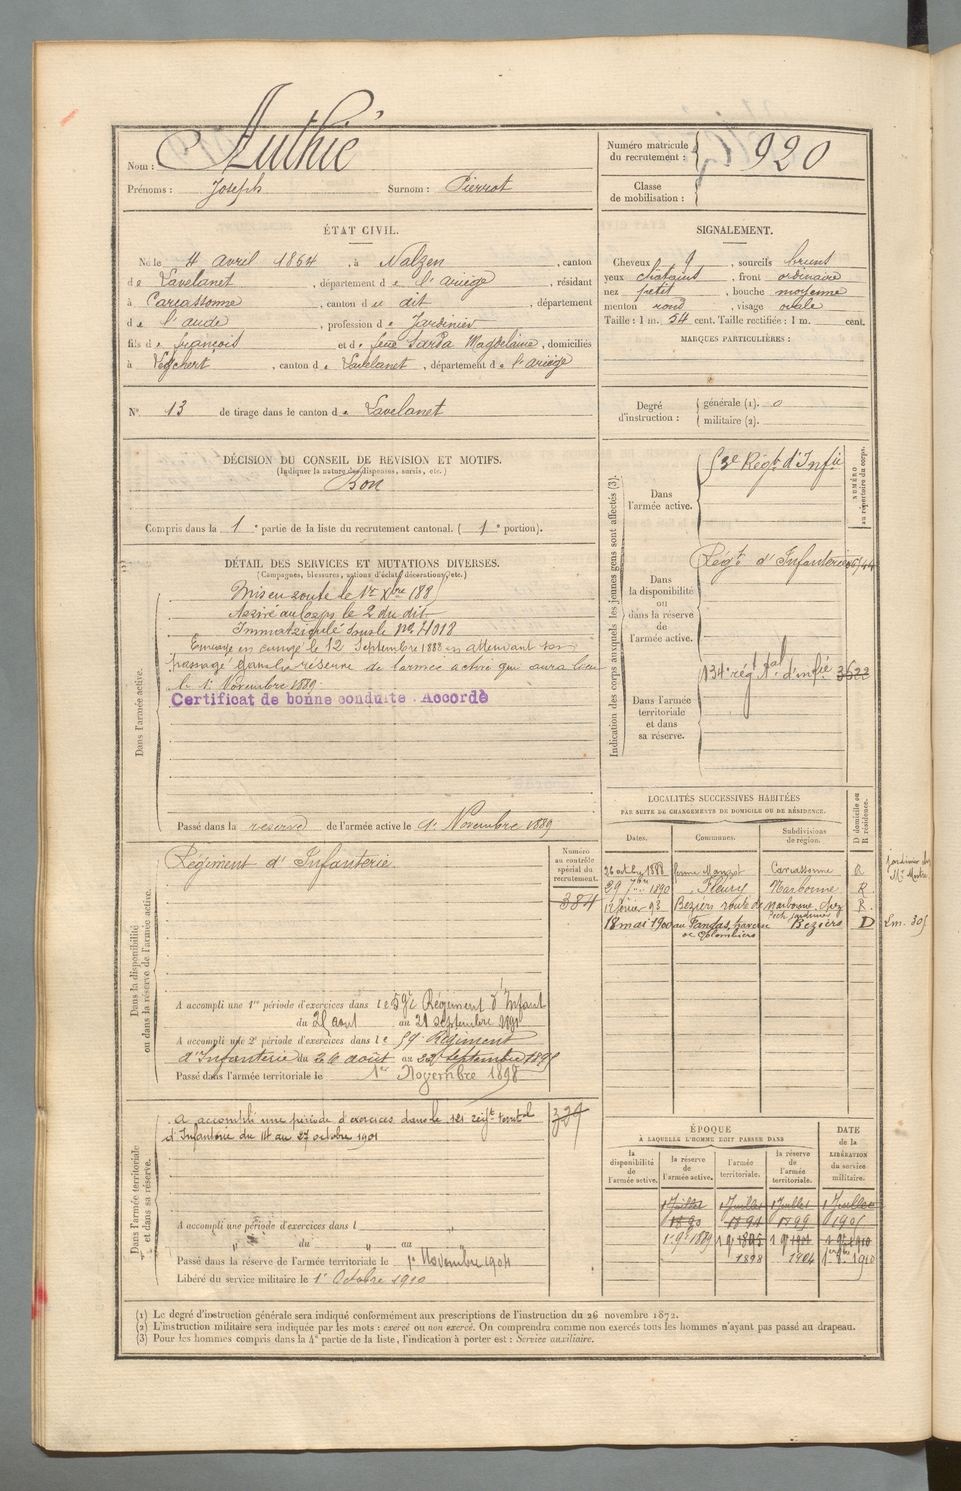 Nom : Authié
Prénoms : Joseph Surnom : Pierrot
Numéro matricule du recrutement : 920
Classe de mobilisation :
ÉTAT CIVIL.
Né le 4 avril 1864, à Nalzen, canton
de Lavelanet, département de l'ariège, résidant
à Carcassonne, canton du dit, département
de l'aude, profession de Jardinier
fils de françois et de feue Sarda Magdelaine, domiciliés
à , canton de Lavelanet, département de l'ariège
N° 13 de tirage dans le canton de Lavelanet
SIGNALEMENT.
Cheveux , sourcils bruns
yeux chatains, front ordinaire
nez petit, bouche moyenne
menton rond, visage ovale
Taille : 1 m. 54 cent. Taille rectifiée : 1 m. cent.
MARQUES PARTICULIÈRES :
Degré d'instruction : générale (1). 0
militaire (2).
DÉCISION DU CONSEIL DE REVISION ET MOTIFS.
(Indiquer la nature des dispenses, sursis, etc.)
Bon
Compris dans la 1e partie de la liste du recrutement cantonal. (1e portion).
DÉTAIL DES SERVICES ET MUTATIONS DIVERSES.
(Campagnes, blessures, actions d'éclat, décorations, etc.)
Dans l'armée active.
Mis en route le 1er Xbre 188
Arrivé au Corps le 2 du dit
Immatriculé sous le no 4018
Envoyé en congé le 12 Septembre 1888 en attendant son
passage dans la réserve de l'armée active qui aura lieu
le 1er Novembre 1889
Certificat de bonne conduite. Accordé
Passé dans la réserve de l'armée active le 1er Novembre 1889
Indication des corps auxquels les jeunes gens sont affectés (3).
NUMÉRO au répertoire du corps.
Dans l'armée active.
Régt d'Infie
Dans la disponibilité ou dans la réserve de l'armée active.
Régt d'Infanterie
Dans l'armée territoriale et dans sa réserve.
134e régt tal d'infie 3622
LOCALITÉS SUCCESSIVES HABITÉES
PAR SUITE DE CHANGEMENTS DE DOMICILE OU DE RÉSIDENCE.
Dates. Communes. Subdivisions de région. D domicile ou R résidence.
26 1888 ferme Carcassonne R
29 7bre 1890 Fleury Narbonne R
12 février 93 Beziers route de Narbonne, chez R
18 mai 1900 Beziers D
Dans la disponibilité ou dans la réserve de l'armée active.
Régiment d'Infanterie
Numéro au contrôle spécial du recrutement.
384
A accompli une 1re période d'exercices dans le 59e Régiment d'Infant
du 25 aout au 21 septembre 1891
A accompli une 2e période d'exercices dans le 59 Régiment
d'Infanterie du 26 août au 22 septembre 1895
Passé dans l'armée territoriale le 1er Novembre 1898
Dans l'armée territoriale et dans sa réserve.
A accompli une période d'exercices dans le 121 régt territal
d'Infanterie du 14 au 27 octobre 1901
A accompli une période d'exercices dans l "
" du " au
Passé dans la réserve de l'armée territoriale le 1er Novembre 1904
Libéré du service militaire le 1er Octobre 1910
ÉPOQUE
À LAQUELLE L'HOMME DOIT PASSER DANS
la disponibilité de l'armée active. la réserve de l'armée active. l'armée territoriale. la réserve de l'armée territoriale. DATE de la LIBÉRATION du service militaire.
1 Juillet 1 Juillet 1 Juillet 1 Juillet
1890 1899
1889 1895
1898 1904 1910
(1) Le degré d'instruction générale sera indiqué conformément aux prescriptions de l'instruction du 26 novembre 1872.
(2) L'instruction militaire sera indiquée par les mots : exercé ou non exercé. On comprendra comme non exercés tous les hommes n'ayant pas passé au drapeau.
(3) Pour les hommes compris dans la 4e partie de la liste, l'indication à porter est : Service auxiliaire.